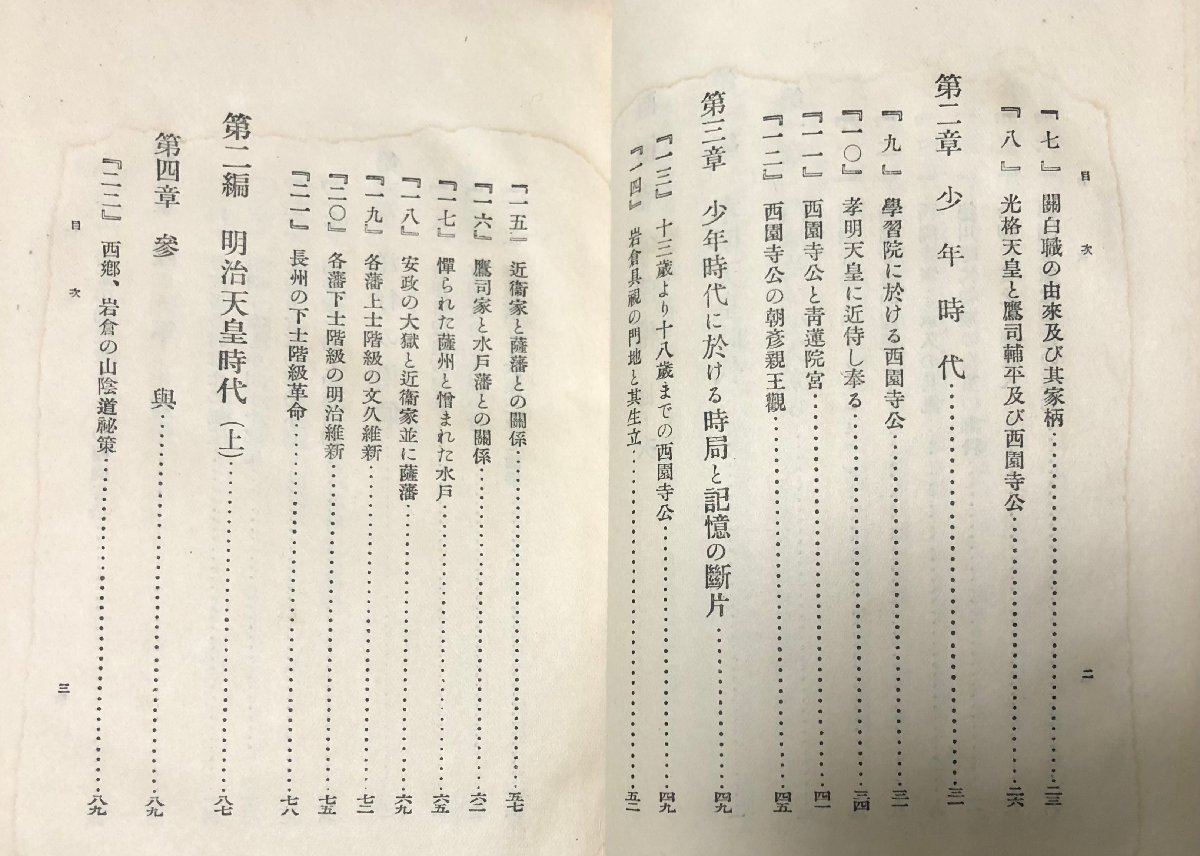 目次
二
『七』 關白職の由來及び其家柄……二三
『八』 光格天皇と鷹司輔平及び西園寺公……二六
第二章 少年時代……三一
『九』 學習院に於ける西園寺公……三一
『一〇』 孝明天皇に近侍し奉る……三四
『一一』 西園寺公と靑蓮院宮……四一
『一二』 西園寺公の朝彦親王觀……四五
第三章 少年時代に於ける時局と記憶の斷片……四九
『一三』 十三歲より十八歲までの西園寺公……四九
『一四』 岩倉具視の門地と其生立……五二
『一五』 近衞家と薩藩との關係……五七
『一六』 鷹司家と水戶藩との關係……六二
『一七』 憚られた薩州と憎まれた水戶……六五
『一八』 安政の大獄と近衞家並に薩藩……六九
『一九』 各藩上士階級の文久維新……七二
『二〇』 各藩下士階級の明治維新……七五
『二一』 長州の下士階級革命……七八
第二編 明治天皇時代(上)……八七
第四章 參與……八九
『二二』 西鄕、岩倉の山陰道祕策……八九
目次
三